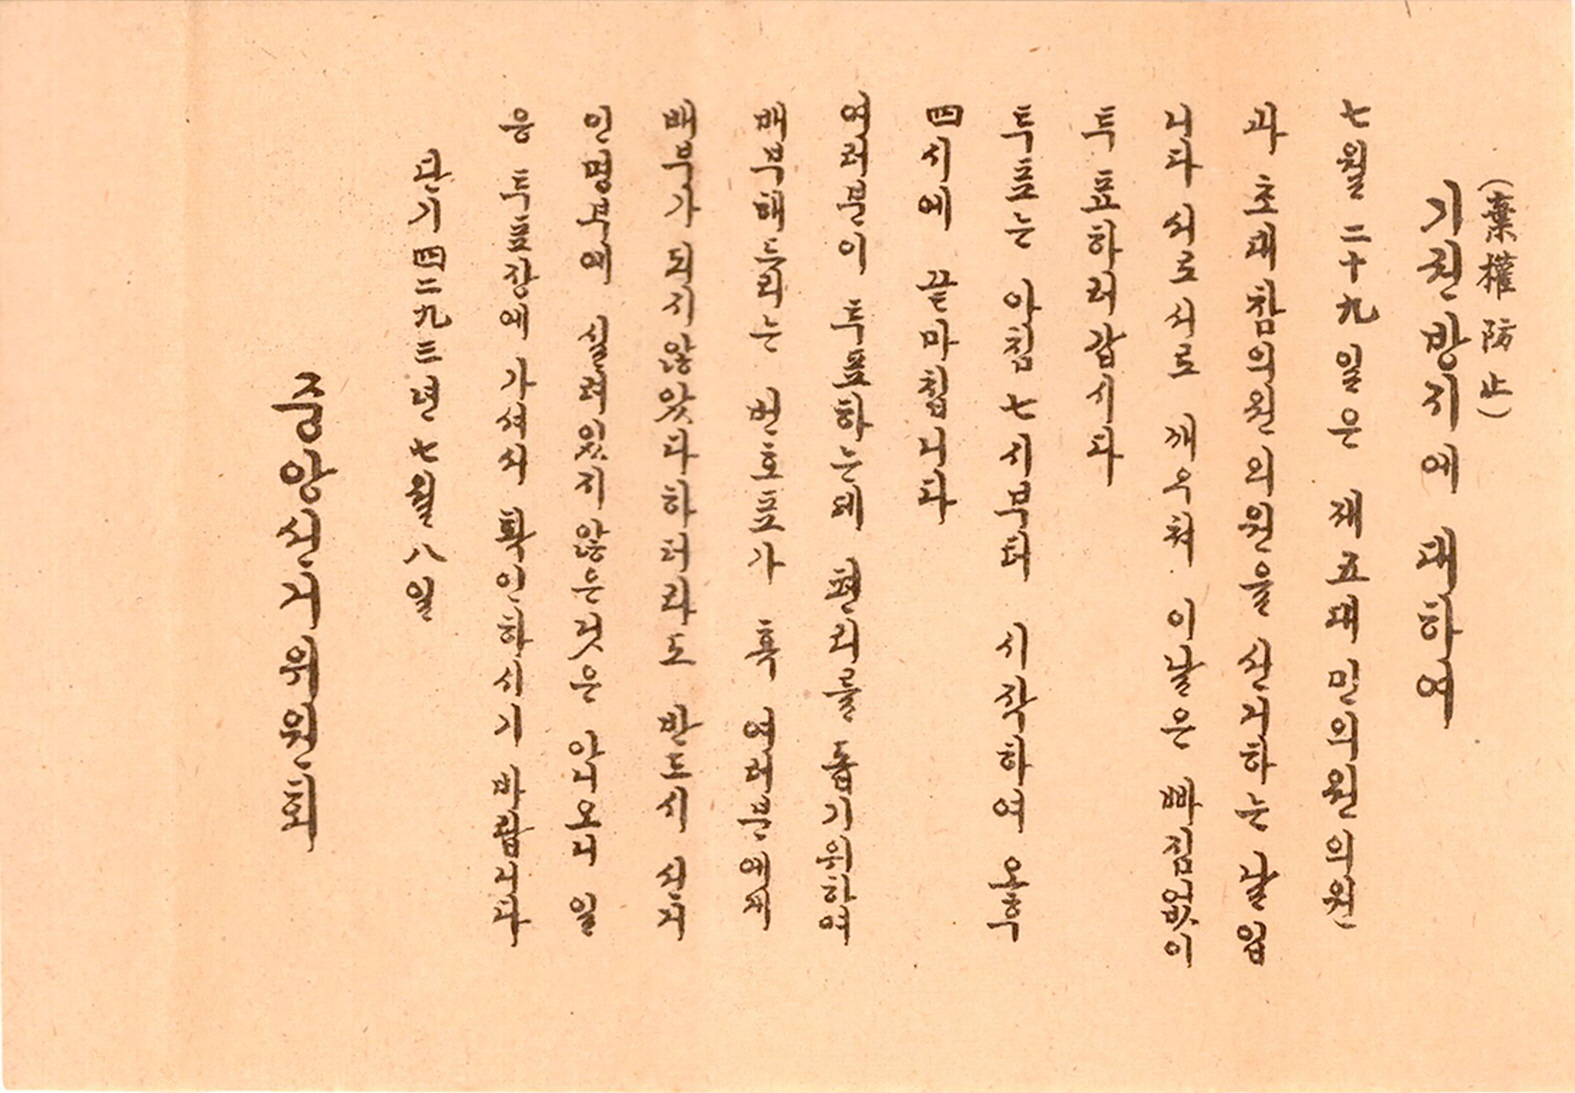 (棄權防止)
기권방지에 대하여
七월 二十九일은 제五대 민의원의원
과 초대참의원의원을 선거하는 날입
니다 서로서로 깨우쳐 이날은 빠짐없이
투표하러갑시다
투표는 아침 七시부터 시작하여 오후
四시에 끝마칩니다
여러분이 투표하는데 편리를 돕기위하여
배부해드리는 번호표가 혹 여러분에게
배부가 되지않았다 하더라도 반드시 선거
인명부에 실려있지않은것은 아니오니 일
응 투표장에 가셔서 확인하시기 바랍니다
단기 四二九三년 七월 八일
중앙선거위원회